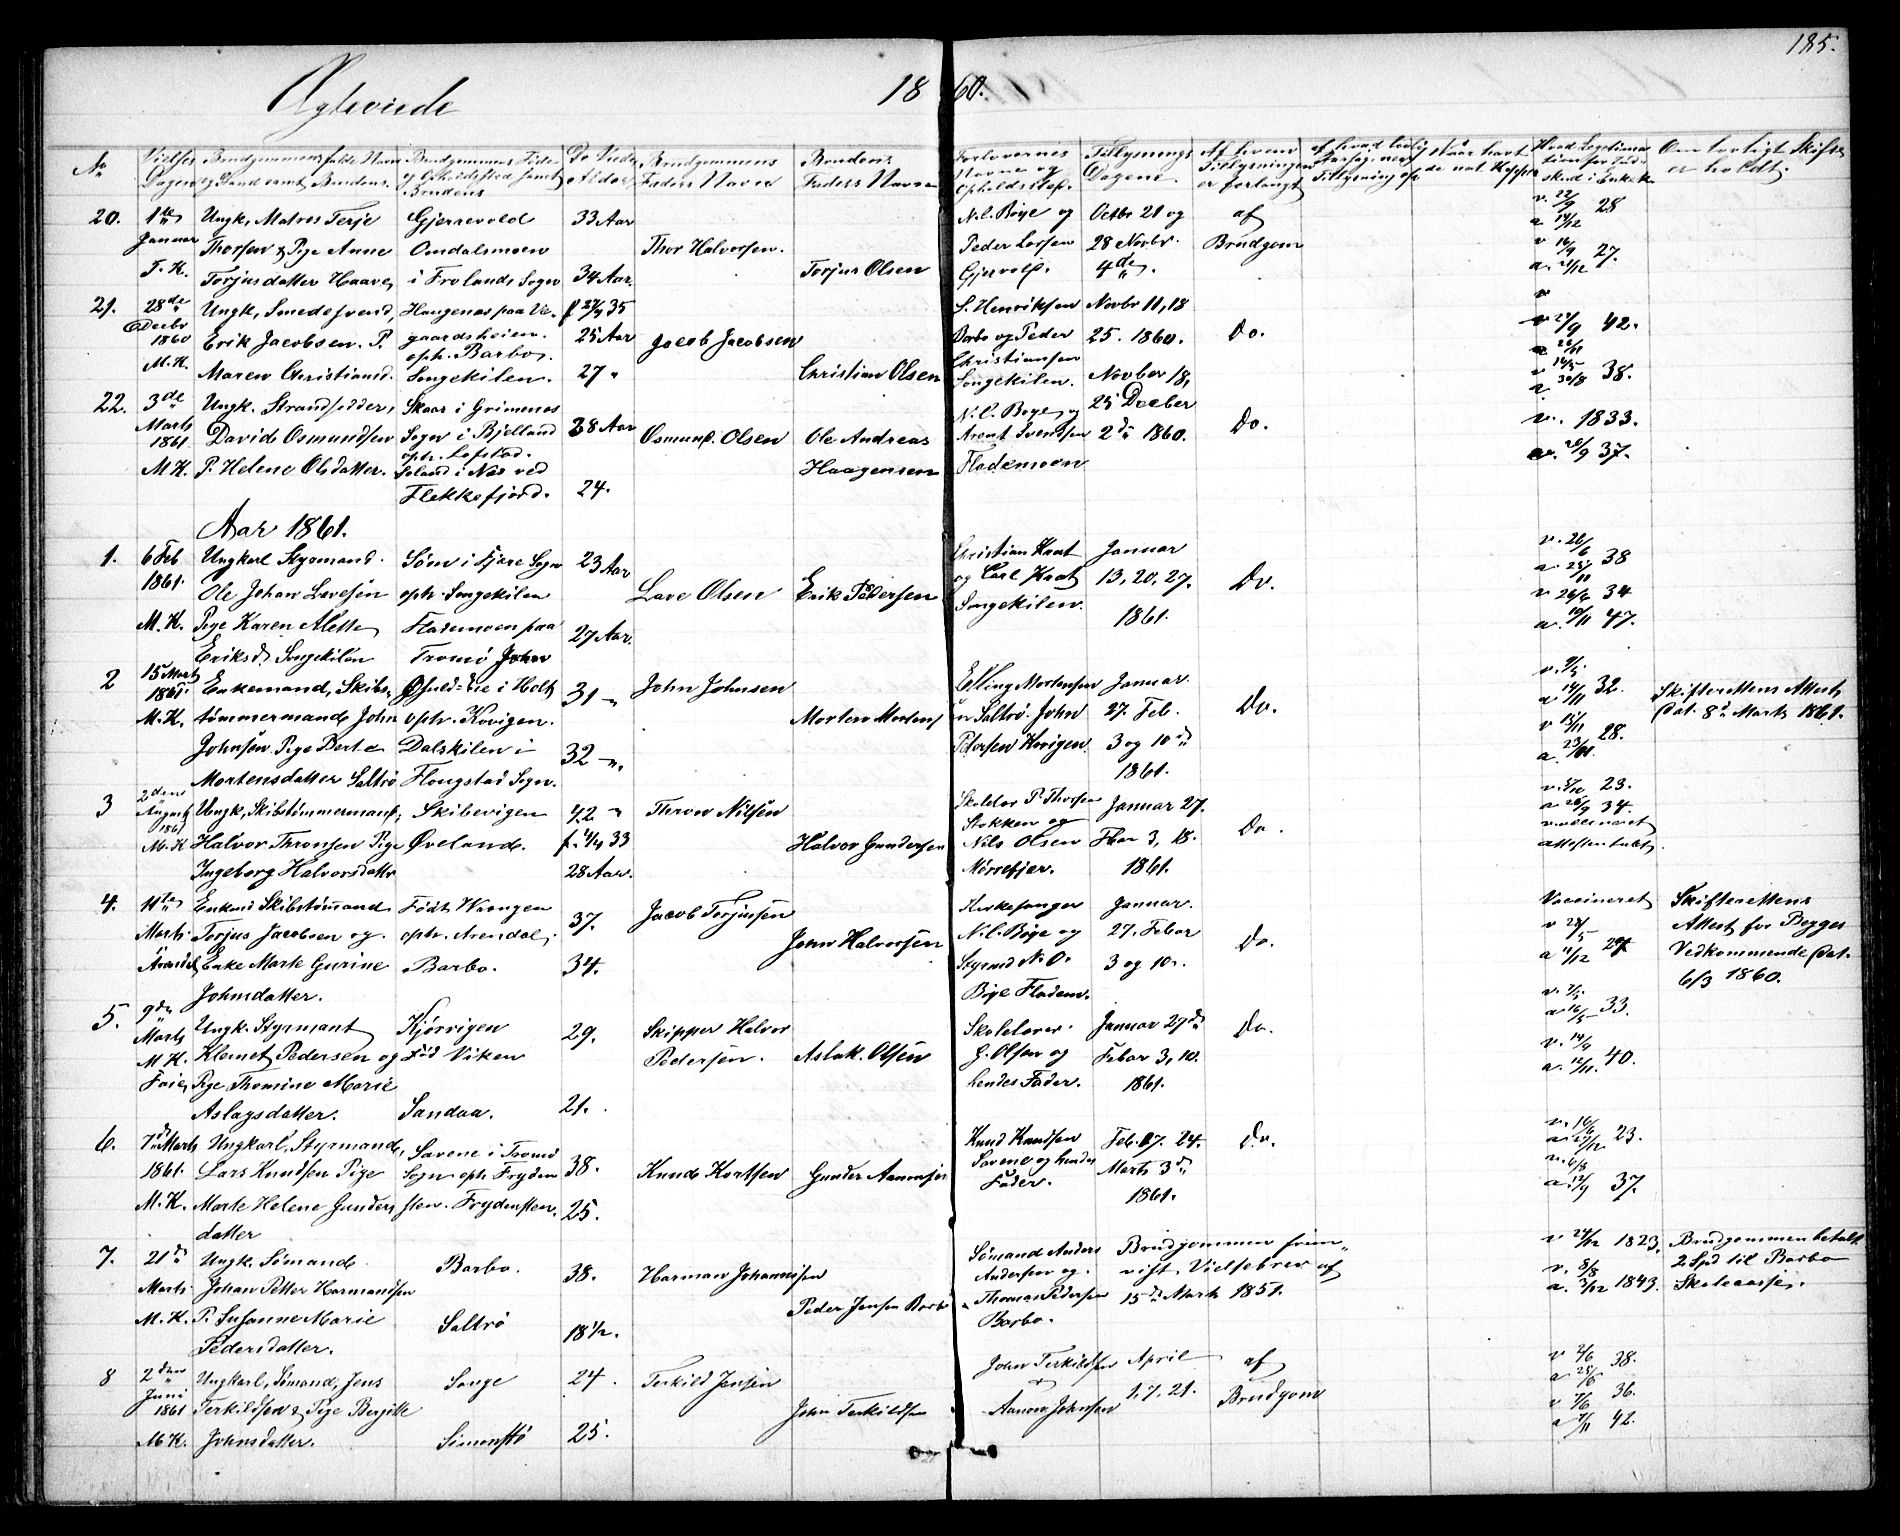 185.
Ægteviede 1860.
No
Vielses Dagen
Brudgommens fulde Navn og Stand samt Brudens
Brudgommens Føde og Opholdssted samt Brudens
De Viedes Alder
Brudgommens Faders Navn
Brudens Faders Navn
Forlovernes Navne og Opholdssted.
Tillysnings Dagene.
Af hvem Tillysningen er forlangt
Om lovligt Skifte er holdt.
20. 1ste Januar T. K.
Ungk, Matros Terje
Thorsen & Pige Anne
Torjusdatter Haave
Gjerrevold
Omdalsmoen
i Frolands Sogn
33 Aar
34 Aar.
Thor Halvorsen.
Torjus Olsen
N. C. Bøye og
Peder Larsen
Gjervold.
Octbr 21 og
28 Novbr.
4de.
af
Brudgom
v. 22/9 28
a 14/12
v 16/9 27.
a. 21/12
21. 28de Decbr 1860 M. K.
Ungk, Smedesvend,
Erik Jacobsen. P.
Maren Christiansd.
Haugenes paa Ve-
gaardsheien.
oph. Barbo.
Songekilen.
f 27/4 35
25 Aar
27 "
Jacob Jacobsen
Christian Olsen
S. Henriksen
Barbo og Peder
Christiansen
Songekilen.
Novbr 11, 18
25. 1860.
Do.
v
v 27/9 42.
a 26/11
v 14/5 38.
a 30/8
22. 3de Marts 1861 M K.
Ungk. Strandsidder,
David Osmundsen
P. Helene Olsdatter.
Skaar i Grimenes
Sogn i Bjelland
oph. Lofstad.
Soland i Næs ved
Flekkefjord.
28 Aar
24.
Osmund Olsen
Ole Andreas
Haagensen
N. C. Bøye og
Arent Svendsen
Flademoen
Novber 18,
25 Decber
2d 1860.
Do.
v. 1833.
a. 20/9 37.
Aar 1861.
1. 6 Feb 1861. M. K.
Ungkarl Styrmand.
Ole Johan Lovesen
Pige Karen Alette
Eriksd. Songekilen
Søm i Fjære Sogn
oph. Songekilen
Flademoen paa
Tromø
23 Aar
27 Aar.
Love Olsen
Erik Pedersen
Christian Knat
og Carl Knat
Songekilen.
Januar
13, 20, 27.
1861.
Do.
v. 26/6
a. 25/11 38
v 26/6 34
a. 10/11 47.
2 15 Marts 1861. M. K.
Enkemand, Skibs-
tømmermand John
Johnsen Pige Berte
Mortensdatter Saltrø
i Holt
oph. Kovigen.
Dalskilen i
Flougstad Sogn.
31 "
32 ".
John Johnsen
Morten Mortens
Elling Mortensen
Saltrø. John
Petersen Kovigen.
Januar.
27. Feb.
3 og 10d
1861.
Do.
v. 9/5
a 14/11 32.
v 15/11
a. 23/11 28.
Skifterettens Attest
dat. 8d Marts 1861.
3 2den August 1861 M. K
Ungk, Skibstømmermand,
Halvor Thronsen Pige
Ingeborg Halvorsdatter
Skibevigen
Øveland.
42 "
f. 4/4 33
28 Aar.
Thron Nilsen
Halvor Gundersen
Skolelær P. Thorsen
Stokken og
Nils Olsen
Mørrefjær.
Januar 27.
Febr 3, 18.
1861.
Do.
v. 5/10 23.
a 26/9 34.
vaccineret
Attesten tabt.
4. 11te Marts Arendal
Enkmd Skibstømmand
Torjus Jacobsen og
Enke Marte Gurine
Johnsdatter.
Født Wrengen
oph. Arendal,
Barbo.
37.
34.
Jacob Torjusen
John Halvorsen
Kirkesanger
N. C. Bøye og
Styrmd N. O.
Bøye Fladem.
Januar.
27. Febar
3 og 10.
Do.
Vaccineret
v 28/5
a 11/12 27
Skifterettens
Attest for Begges
Vedkommende dat.
6/3 1860.
5. 9de Marts M. K.
Ungk. Styrmand
Klemet Pedersen og
Pige Thomine Marie
Aslagsdatter.
Kjørvigen
Fød Viken
Sandaa.
29.
21.
Skipper Halvor
Pedersen.
Aslak. Olsen
Skolelærer
G. Olsen og
hendes Fader.
Januar 27d
Febar 3, 10.
1861.
Do.
v. 7/5
a 16/5 33.
v. 14/9
a. 12/11. 40.
6. 7d Marts 1861. M. K.
Ungkarl, Styrmand,
Lars Knudsen Pige
Marte Helene Gunders
datter
Savene i Tromø
Sogn oph. Fryden
sten. Frydensten.
38.
25.
Knud Kortsen
Gunder Aanonsen
Knud Knudsen
Savene og hendes
Fader.
Feb. 17. 24.
Marts 3d
1861.
Do.
v. 16/6
a. 27/12 23.
v. 6/8
a. 12/9 37.
7. 21d Marts M. K.
Ungk. Sømand.
Johan Petter Harmandsen
P. Susanne Marie
Pedersdatter.
Barbo.
Saltrø
38.
18 1/2.
Harman Johannesen
Peder Jensen Barbo
Sømand Anders
Andersen og
Thomas Pedersen
Barbo.
Brudgommen frem-
vist Vielsebrev af
15d Marts 1851.
v 24/12 1823.
v. 8/8
a. 3/12 1843.
Brudgommen betalt
2 Spd til Barbo
Skolecasse.
8 2den Juni 1861 M K.
Ungkarl, Sømand, Jens
Terkildsen & Pige Bergitte
Johnsdatter.
Songe
Simonstø
24.
25.
Terkild Jensen
John Terkildsen
John Terkildsen
Aanon Johnsen
April
1. 7. 21.
af
Brudgom
v 2/6
a. 25/5 38.
v 7/6 36.
a 7/11 42.